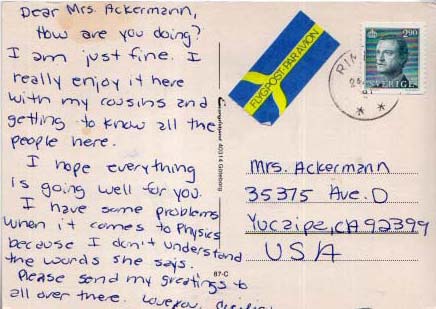 Dear Mrs. Ackermann,
How are you doing?
I am just fine. I
really enjoy it here
with my cousins and
getting to know all the
people here.
I hope everything
is going well for you.
I have some problems
when it comes to Physics
because I don't understand
the words she says.
Please send my greatings to
all over there. Love you,
87-C
40314 Göteborg
FLYGPOST·PAR AVION
2.90
SVERIGE
Mrs. Ackermann
35375 Ave. D
Yucaipe, CA 92399
USA